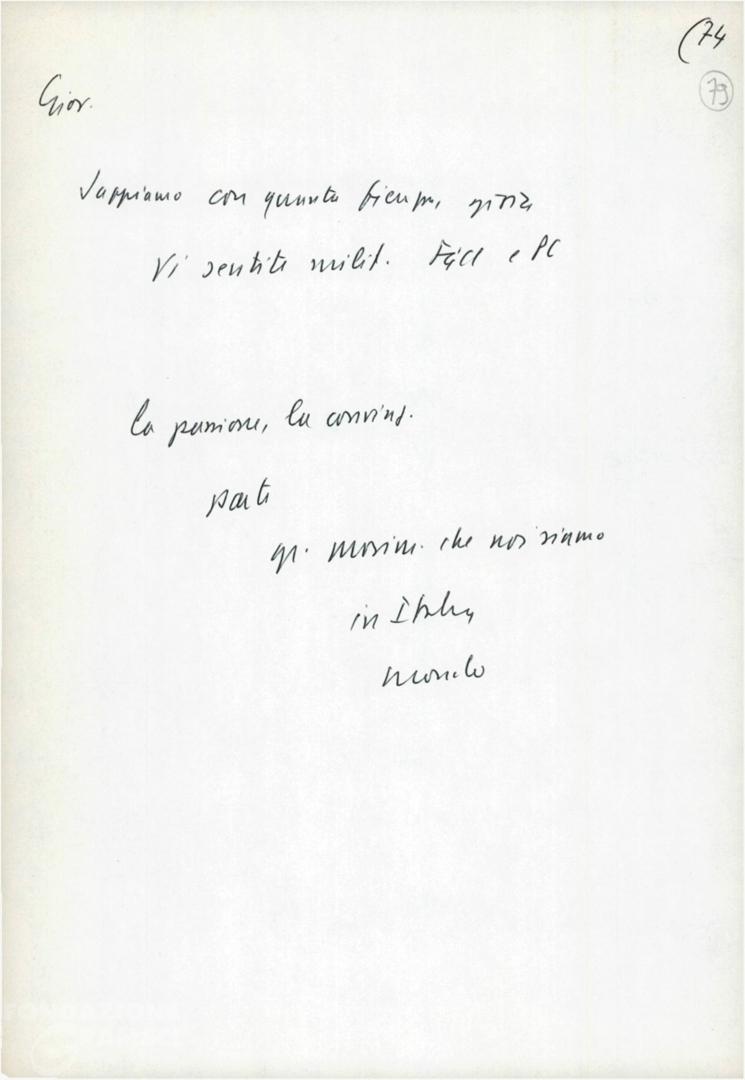 (74
79
Giov.
Sappiamo con quanta fierezza, gioia
Vi sentite milit. FGCI e PC
la passione, la convinz.
parte
gr. movim. che noi siamo
in Italia
mondo
FONDAZIONE